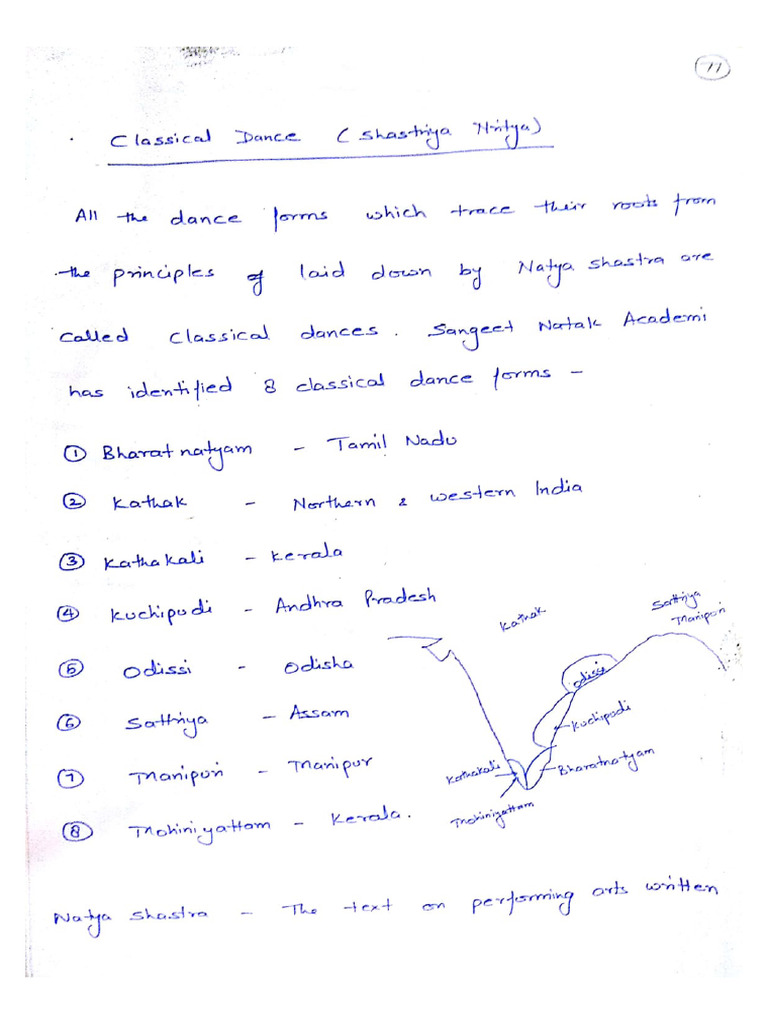 77
Classical Dance (Shastriya Nritya)
All the dance forms which trace their roots from
the principles of laid down by Natya Shastra are
called classical dances. Sangeet Natak Academi
has identified 8 classical dance forms –
① Bharatnatyam - Tamil Nadu
② Kathak - Northern & western India
③ Kathakali - Kerala
④ Kuchipudi - Andhra Pradesh
⑤ Odissi - Odisha
⑥ Sattriya - Assam
⑦ Manipuri - Manipur
⑧ Mohiniyattam - Kerala.
Kathak
Sattriya
Manipuri
Odissi
Kuchipudi
Kathakali
Bharatnatyam
Mohiniyattam
Natya Shastra - The text on performing arts written